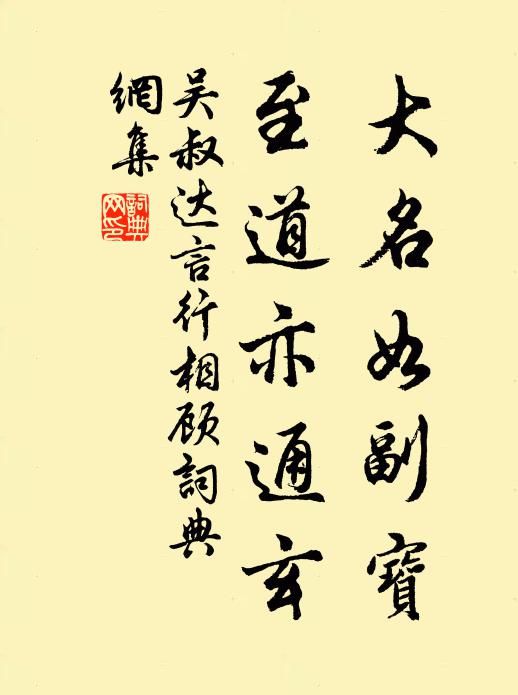 大名如副寶
至道亦通玄
吴叔达言行相顾詞典
網集
詞典
网印